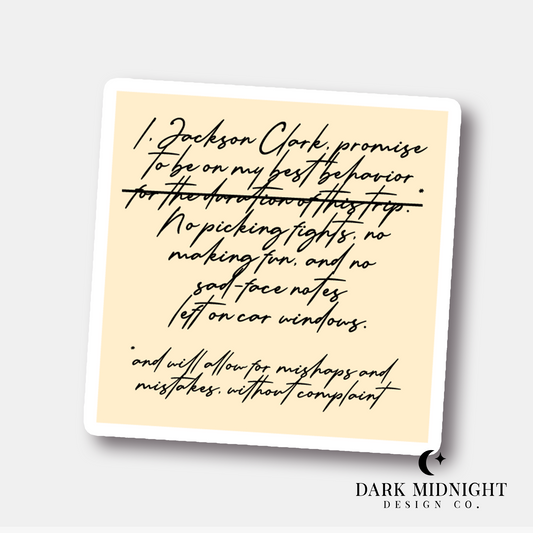 I, Jackson Clark, promise
to be on my best behavior
for the duration of this trip.*
No picking fights, no
making fun, and no
sad-face notes
left on car windows.
*and will allow for mishaps and
mistakes, without complaint
DARK MIDNIGHT
DESIGN CO.